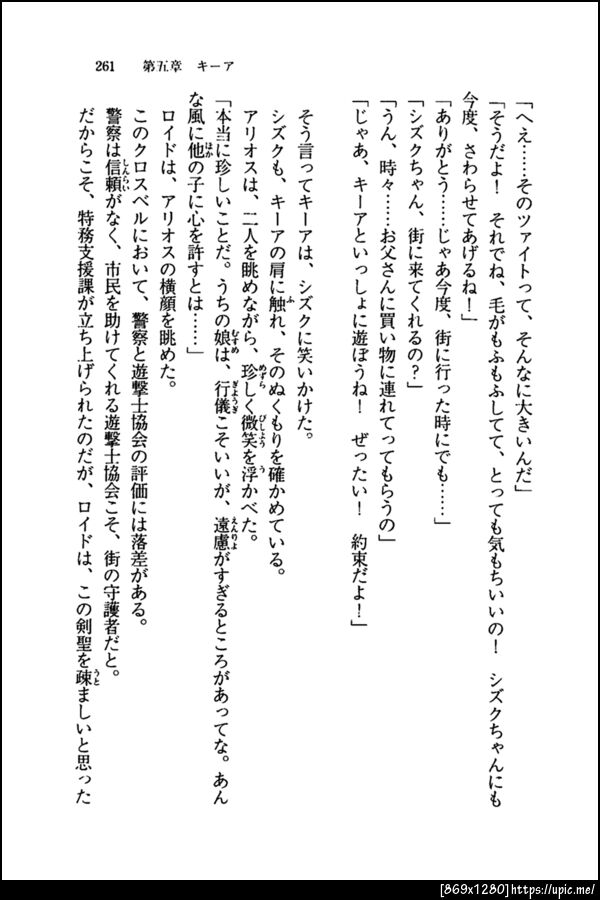 261 第五章 キーア
「へえ……そのツァイトって、そんなに大きいんだ」
「そうだよ！ それでね、毛がもふもふしてて、とっても気もちいいの！ シズクちゃんにも
今度、さわらせてあげるね！」
「ありがとう……じゃあ今度、街に行った時にでも……」
「シズクちゃん、街に来てくれるの？」
「うん、時々……お父さんに買い物に連れてってもらうの」
「じゃあ、キーアといっしょに遊ぼうね！ ぜったい！ 約束だよ！」
そう言ってキーアは、シズクに笑いかけた。
シズクも、キーアの肩に触れ、そのぬくもりを確かめている。
アリオスは、二人を眺めながら、珍しく微笑を浮かべた。
「本当に珍しいことだ。うちの娘は、行儀こそいいが、遠慮がすぎるところがあってな。あん
な風に他の子に心を許すとは……」
ロイドは、アリオスの横顔を眺めた。
このクロスベルにおいて、警察と遊撃士協会の評価には落差がある。
警察は信頼がなく、市民を助けてくれる遊撃士協会こそ、街の守護者だと。
だからこそ、特務支援課が立ち上げられたのだが、ロイドは、この剣聖を疎ましいと思った
[869x1280]https://upic.me/